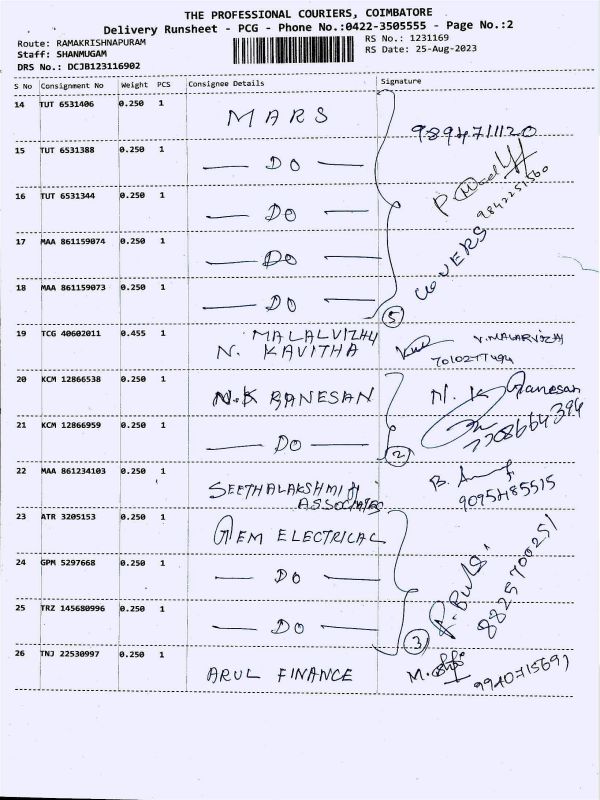 THE PROFESSIONAL COURIERS, COIMBATORE
Delivery Runsheet - PCG - Phone No.:0422-3505555 - Page No.:2
Route: RAMAKRISHNAPURAM
RS No.: 1231169
Staff: SHANMUGAM
RS Date: 25-Aug-2023
DRS No.: DCJB123116902
S No Consignment No Weight PCS Consignee Details Signature
14 TUT 6531406 0.250 1 MARS
9894711120
15 TUT 6531388 0.250 1 — DO —
16 TUT 6531344 0.250 1 — DO —
9842251560
17 MAA 861159074 0.250 1 — DO —
COVERS
18 MAA 861159073 0.250 1 — DO —
5
19 TCG 40602011 0.455 1 MALALVIZHY
N. KAVITHA
V.MALARVIZHI
7010277494
20 KCM 12866538 0.250 1 N.K GANESAN N. K Ganesan
21 KCM 12866959 0.250 1 — DO —
7708664394
2
22 MAA 861234103 0.250 1 SEETHALAKSHMI
ASSOCIATES
9095485515
23 ATR 3205153 0.250 1 GEM ELECTRICAL
24 GPM 5297668 0.250 1 — DO —
8825700251
25 TRZ 145680996 0.250 1 — DO —
3
26 TNJ 22530997 0.250 1 ARUL FINANCE
9940715691